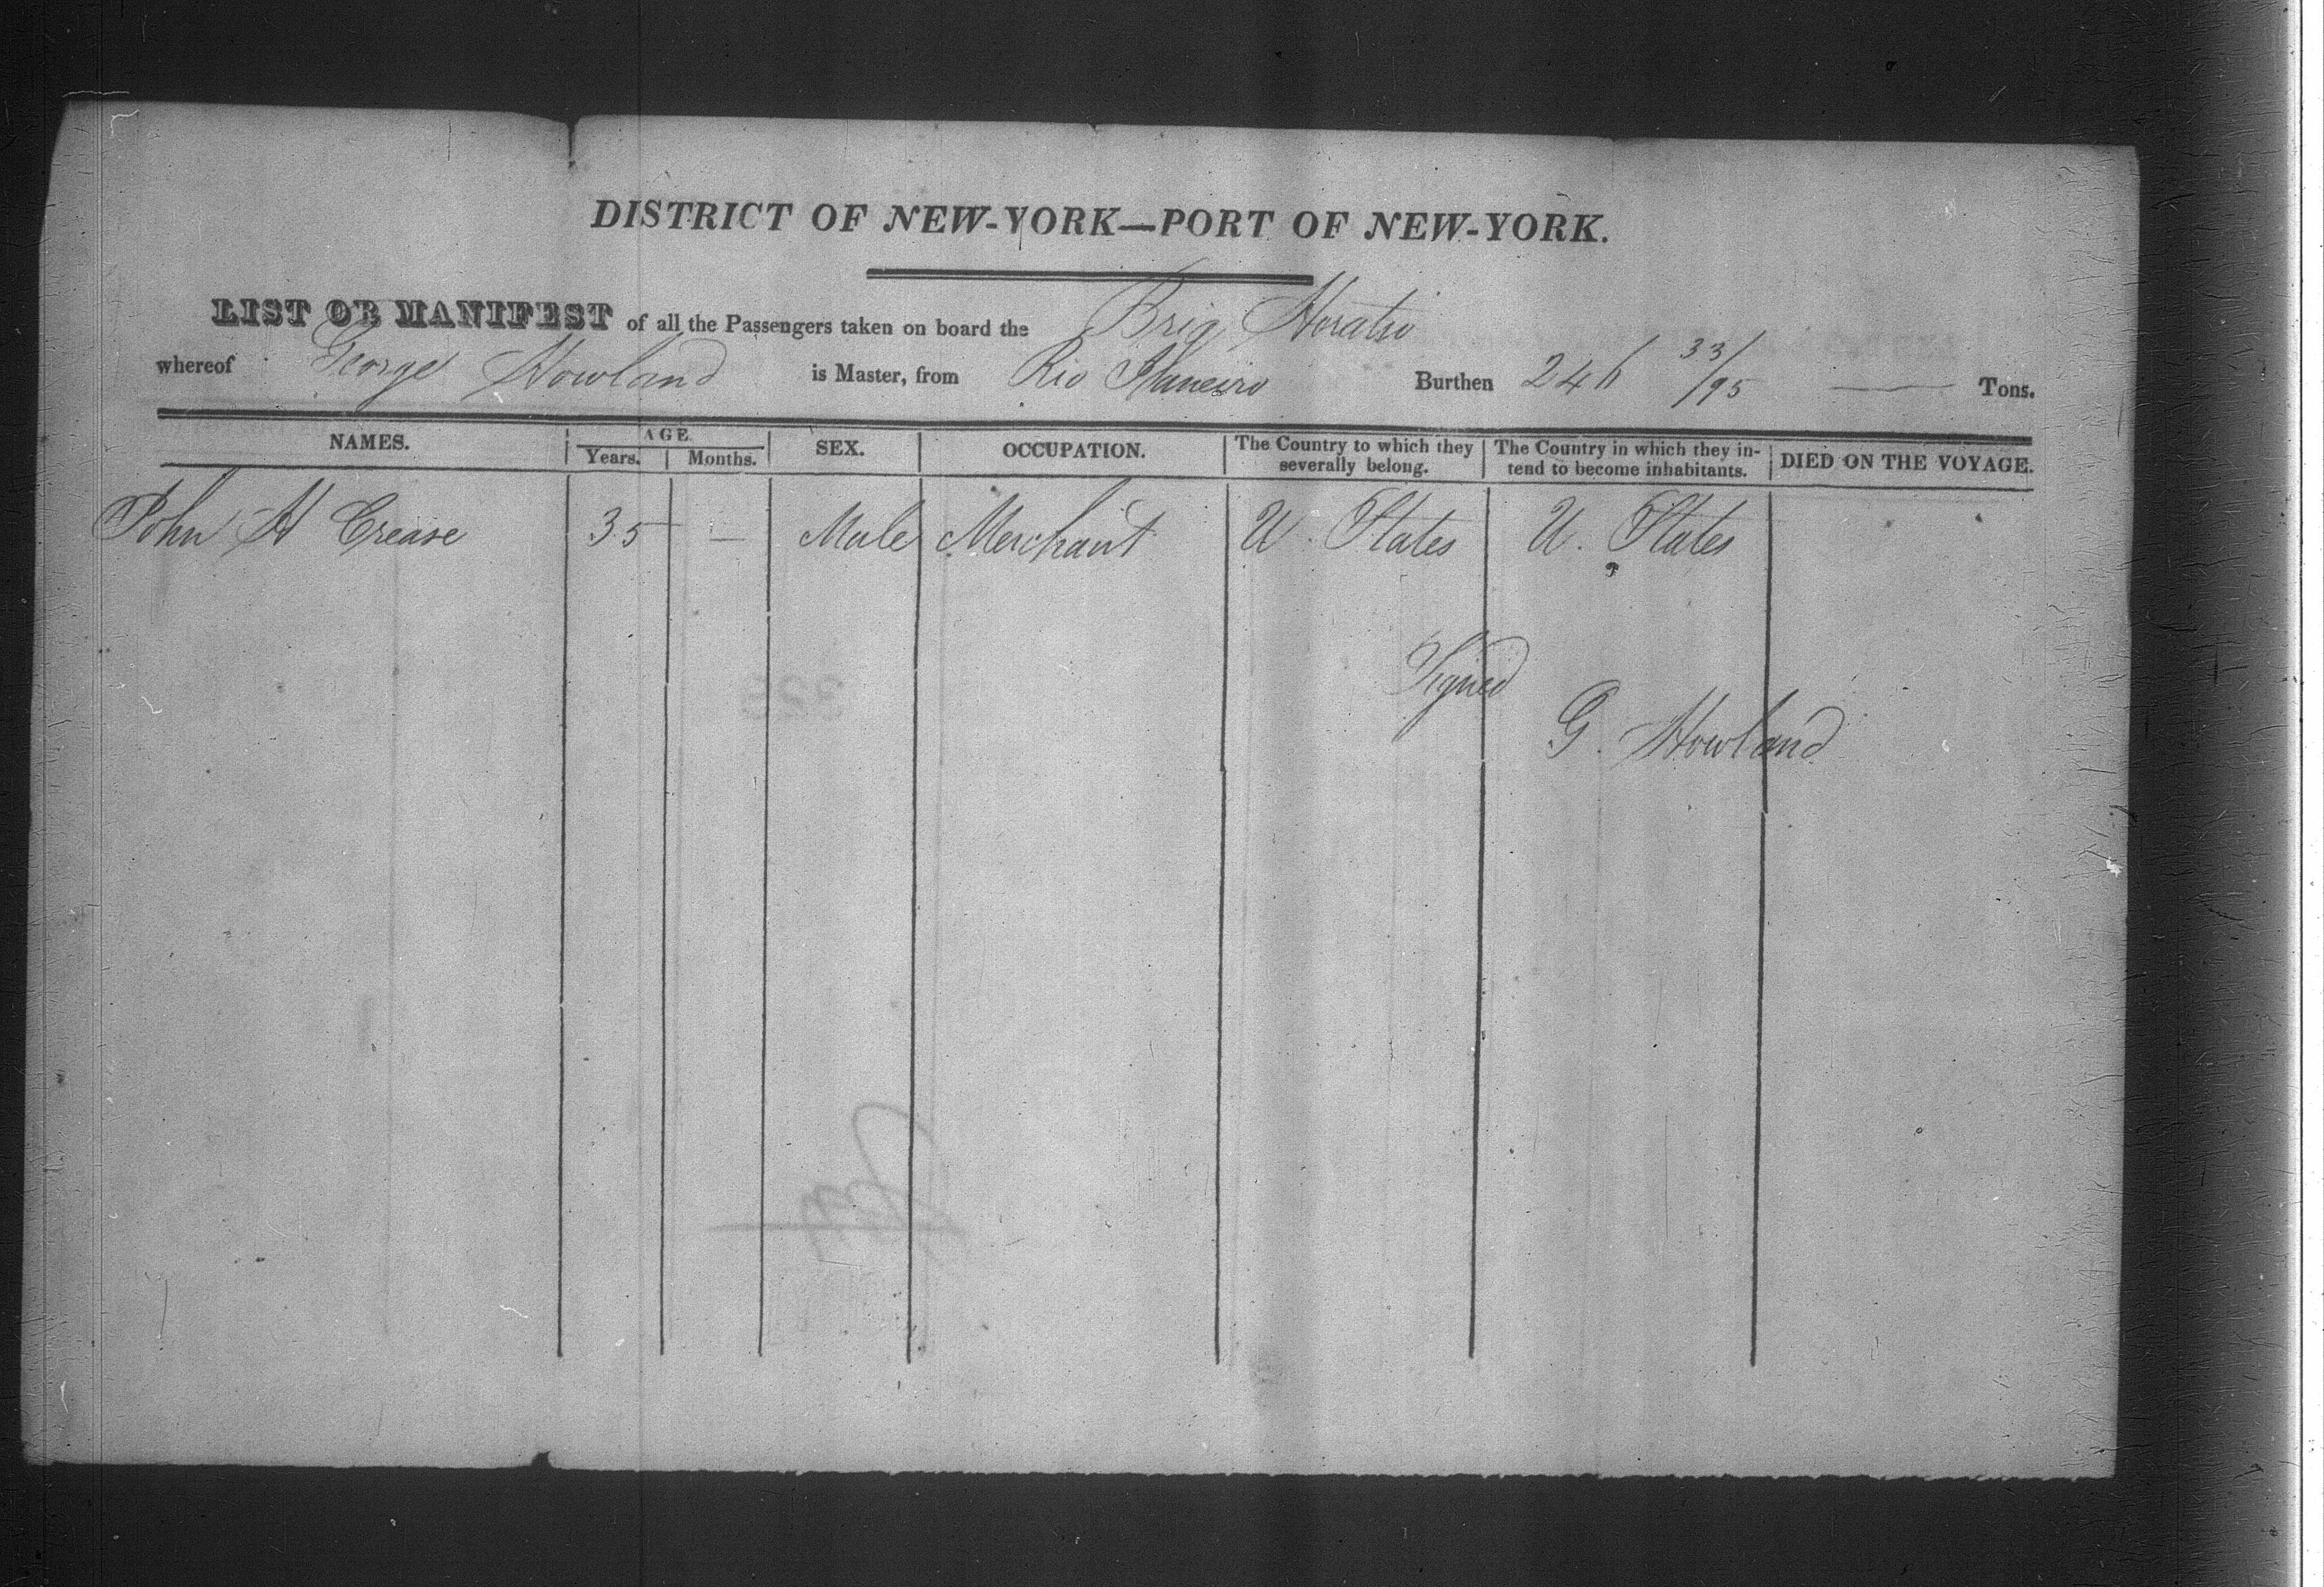 DISTRICT OF NEW-YORK—PORT OF NEW-YORK.
LIST OR MANIFEST of all the Passengers taken on board the Brig Horatio
whereof George Howland is Master, from Rio Janeiro Burthen 246 33/95 — Tons.
NAMES. AGE SEX. OCCUPATION. The Country to which they severally belong. The Country in which they in- tend to become inhabitants. DIED ON THE VOYAGE.
Years. Months.
John H Crease 35 — Male Merchant U. States U. States
Signed
G. Howland